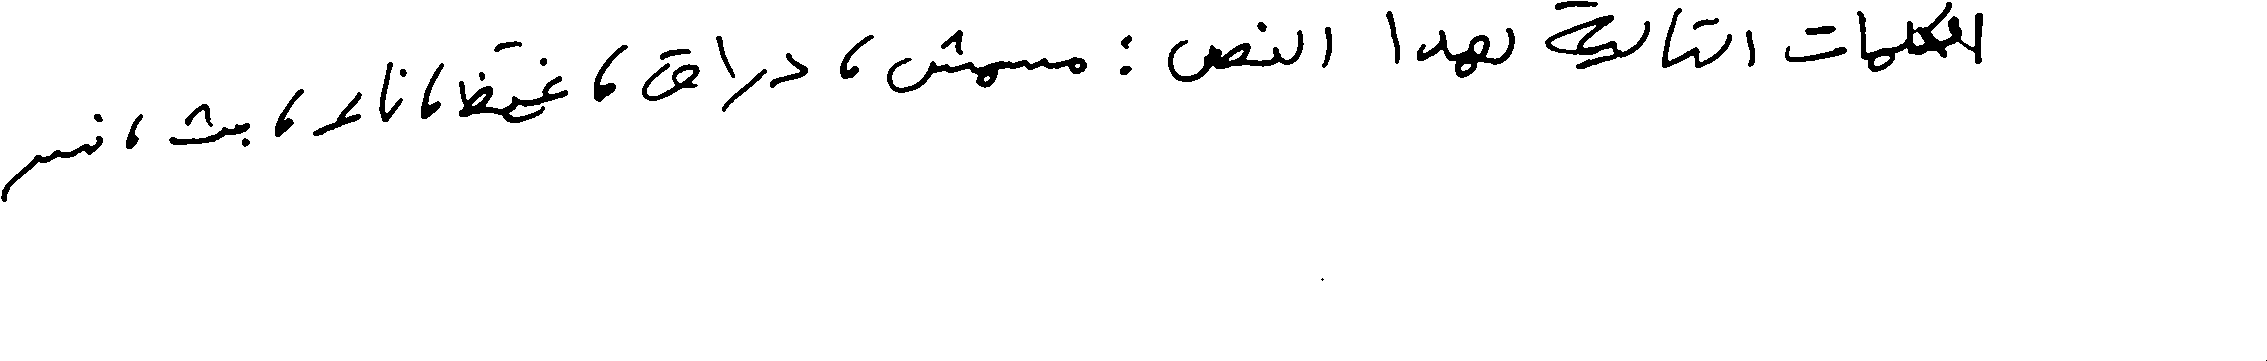 الكلمات التالية لهدا النص : مسمش ، دراق ، غيظ ، ناء ، بث ، نسر